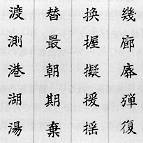 幾廊廃弾復
換握援揺
替最朝期棄
渡測港湖湯